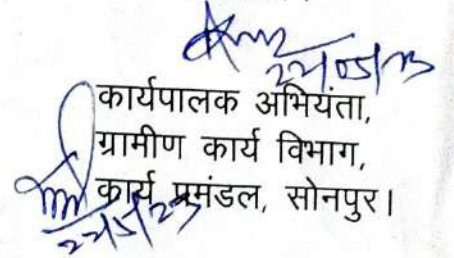 22/05/23
कार्यपालक अभियंता,
ग्रामीण कार्य विभाग,
कार्य प्रमंडल, सोनपुर।
22/5/23